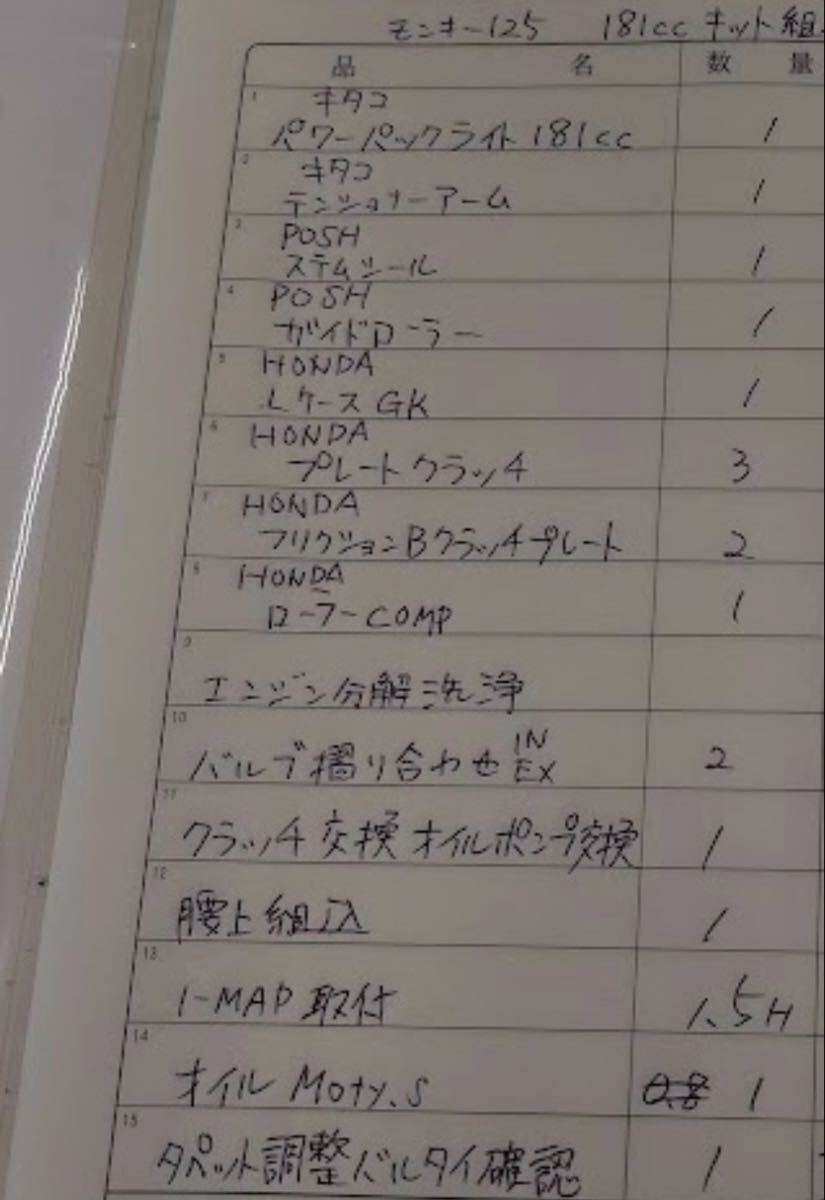 モンキー125 181cc キット組
品 名 数 量
1 キタコ
パワーパックライト 181cc 1
2 キタコ
テンショナーアーム 1
3 POSH
ステムシール 1
4 POSH
ガイドローラー 1
5 HONDA
Lケース GK 1
6 HONDA
プレートクラッチ 3
7 HONDA
フリクションBクラッチプレート 2
8 HONDA
ローラーCOMP 1
9
エンジン分解洗浄
10 IN
バルブ摺り合わせ EX 2
11
クラッチ交換 オイルポンプ交換 1
12
腰上組込 1
13
I-MAP 取付 1.5H
14
オイル Moty.s 0.8 1
15
タペット調整バルタイ確認 1